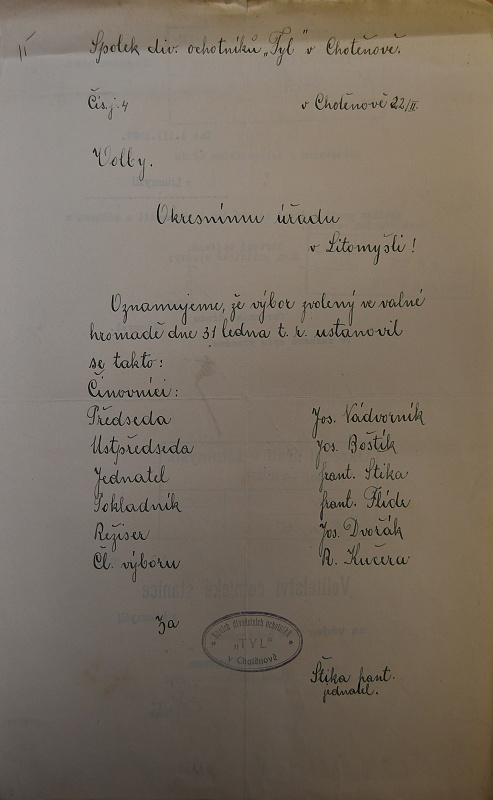 Spolek div. ochotníků „Tyl" v Chotěnově.
Čís. j. 4 v Chotěnově 22/II.
Volby.
Okresnímu úřadu
v Litomyšli!
Oznamujeme, že výbor zvolený ve valné
hromadě dne 31 ledna t. r. ustanovil
se takto:
Činovníci:
Předseda Jos. Nádvorník
Místpředseda Jos. Boštík
Jednatel Frant. Štika
Pokladník Frant. Flídr
Režiser Jos. Dvořák
Čl. výboru R. Kučera
Za
Spolek divadelních ochotníků
„TYL"
v Chotěnově
Štika Frant.
jednatel.